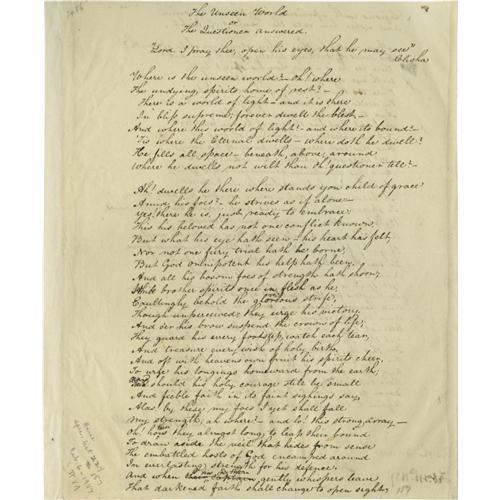 The Unseen World
or
The Questioner answered.
"Lord I pray thee, open his eyes, that he may see"
Elisha
Where is the unseen world? – Oh! where
The undying, spirits home of rest? –
There is a world of light – and it is there
In bliss supreme, forever dwell the blest –
And where this world of light? – and where its bound? –
'Tis where the Eternal dwells – where doth he dwell?
He fills all space – beneath, above, around
Where he dwells not wilt thou oh! questioner tell? –
Ah! dwells he there where stands yon child of grace
Amidst his foes? – he strives as if alone –
Yes, there he is, just ready to embrace
This his beloved has not one conflict known,
But what his eye hath seen, – his heart has felt,
Nor not one fiery trial hath he borne,
But God omnipotent his help hath been,
And all his bosom foes of strength hath shorn;
While brother spirits once in flesh as he,
Exultingly behold the glorious strife,
Though unperceived; they urge his victory,
And oer his brow suspend the crowns of life;
They guard his every footstep, watch each tear,
And treasure every wish of holy birth,
And oft with heavens own fruit his spirits cheer,
To urge his longings homeward from the earth;
should his holy courage still be small
And feeble faith in its faint sighings say,
Alas! by these, my foes I yet shall fall
My strength, ah where? – and lo! this strong array –
Oh! how they almost long, to leap their bound
To draw aside the veil that hides from sense
The embattled hosts of God encamped around
In everlasting strength for his defence.
And when captain gently whispers leave
That darkened faith shall change to open sight,